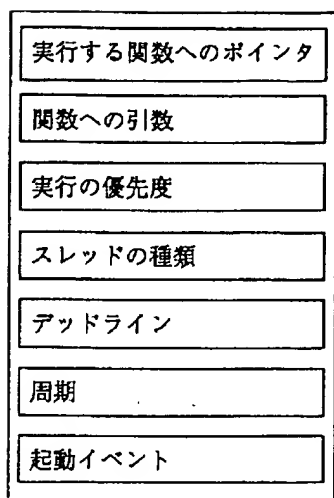 実行する関数へのポインタ
関数への引数
実行の優先度
スレッドの種類
デッドライン
周期
起動イベント